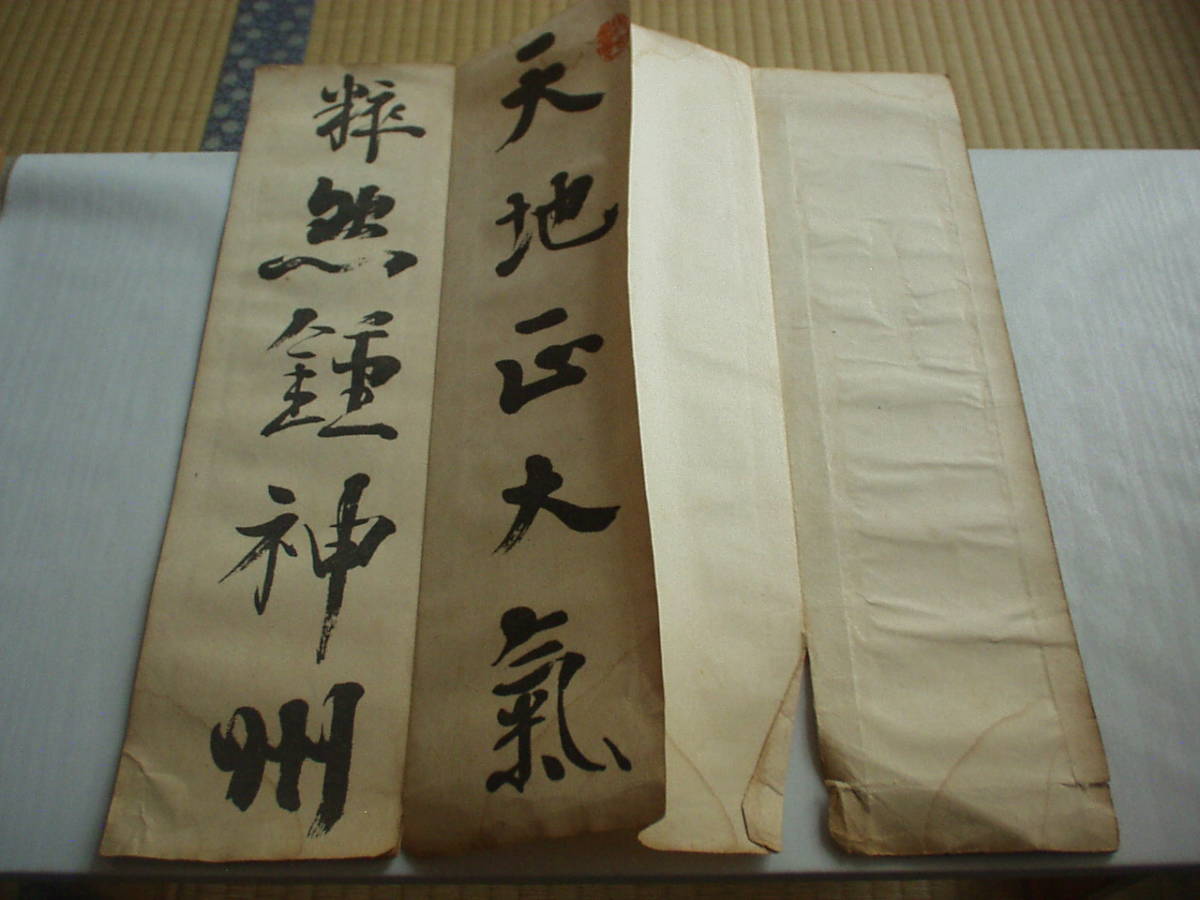 天地正大氣
粹然鍾神州